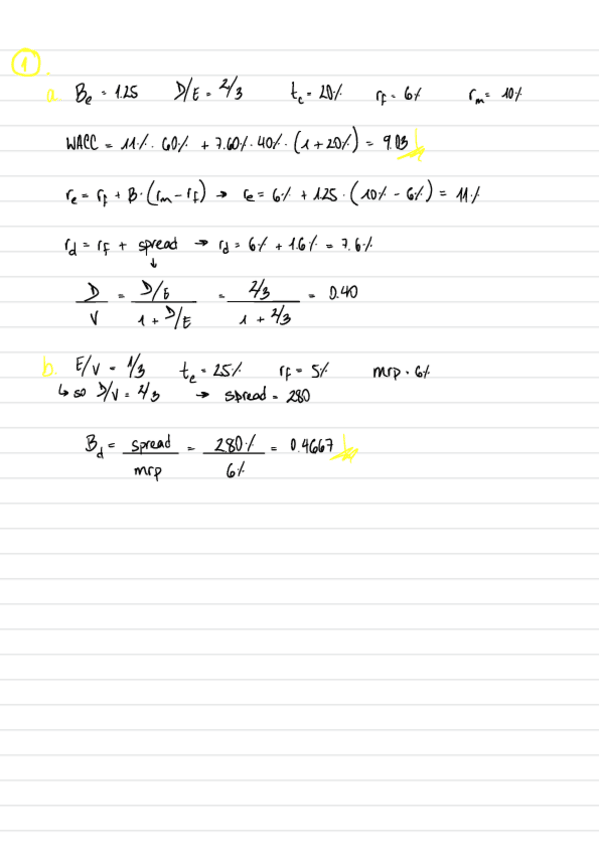 1
a. Be = 1.25 D/E = 2/3 tc = 20% rf = 6% rm = 10%
WACC = 11% · 60% + 7.60% · 40% · (1 + 20%) = 9.03
re = rf + B · (rm - rf) → re = 6% + 1.25 · (10% - 6%) = 11%
rd = rf + spread → rd = 6% + 1.6% = 7.6%
↓
D/V = D/E / 1 + D/E = 2/3 / 1 + 2/3 = 0.40
b. E/V = 1/3 tc = 25% rf = 5% mrp = 6%
↳ so D/V = 2/3 → spread = 280
Bd = spread / mrp = 280% / 6% = 0.4667